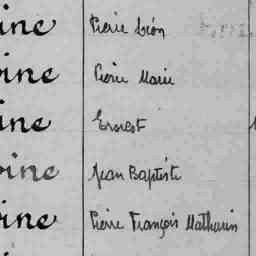 ine Pierre Léon
oine Pierre Marie
ine Ernest
oine Jean Baptiste
oine Pierre François Mathurin